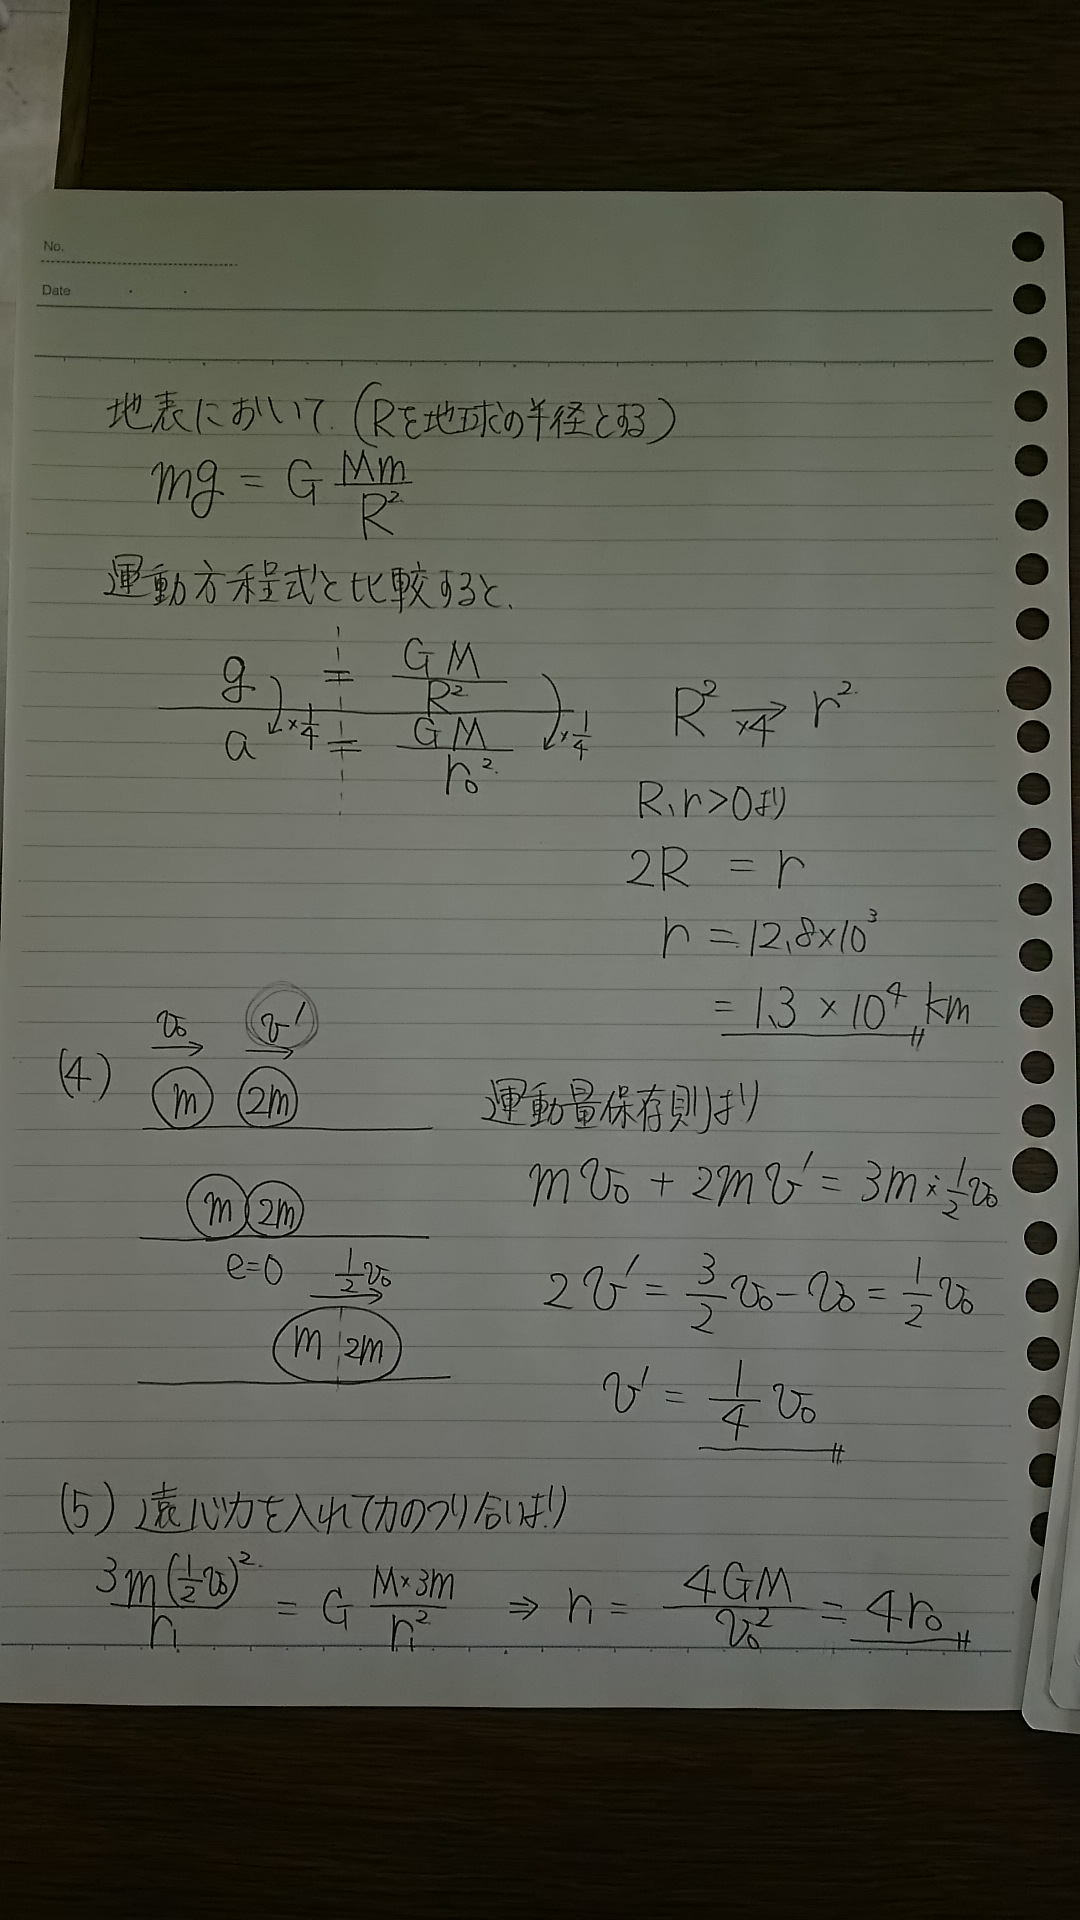 No.
Date
地表において (Rを地球の半径とする)
mg = G Mm/R²
運動方程式と比較すると、
g = GM/R²
×1/4 ×1/4
a = GM/r₀²
R² →×4 r²
R、r>0より
2R = r
r = 12.8×10³
= 1.3 × 10⁴ km
(4) v₀ v'
m 2m
運動量保存則より
mv₀ + 2mv' = 3m × 1/2 v₀
m 2m
e=0 1/2 v₀
m 2m
2v' = 3/2 v₀ - v₀ = 1/2 v₀
v' = 1/4 v₀
(5) 遠心力を入れて力のつり合いより
3m(1/2 v₀)²/r₁ = G M×3m/r₁² ⇒ r₁ = 4GM/v₀² = 4r₀